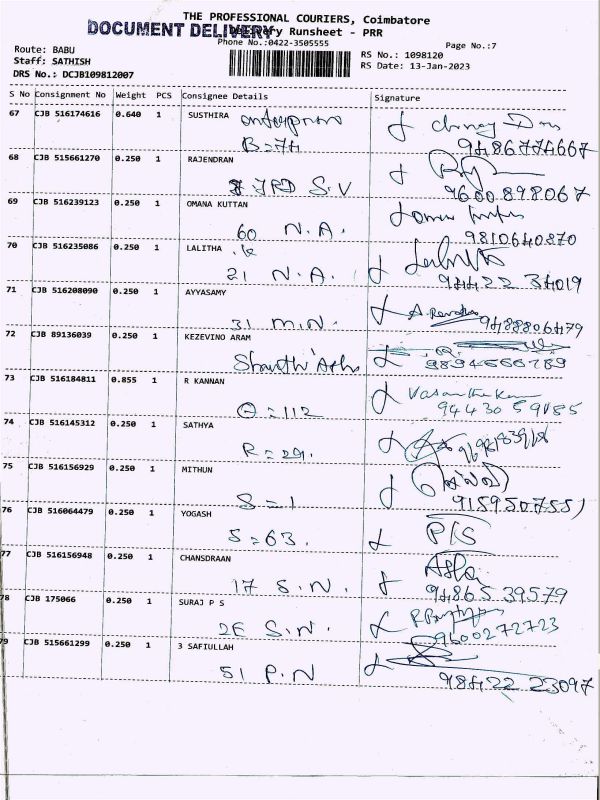 THE PROFESSIONAL COURIERS, Coimbatore
DOCUMENT DELIVERY
Delivery Runsheet - PRR
Phone No.:0422-3505555
Page No.:7
Route: BABU
RS No.: 1098120
Staff: SATHISH
RS Date: 13-Jan-2023
DRS No.: DCJB109812007
S No Consignment No Weight PCS Consignee Details Signature
67 CJB 516174616 0.640 1 SUSTHIRA
B=74 9486774667
68 CJB 515661270 0.250 1 RAJENDRAN
7 JRD S.V 9600898067
69 CJB 516239123 0.250 1 OMANA KUTTAN
60 N.A. 9810640870
70 CJB 516235086 0.250 1 LALITHA
21 N.A. 94422 34019
71 CJB 516208090 0.250 1 AYYASAMY
31 M.N. 9488806479
72 CJB 89136039 0.250 1 KEZEVINO ARAM
9894666789
73 CJB 516184811 0.855 1 R KANNAN
Q=112 94430 59185
74 CJB 516145312 0.250 1 SATHYA
R=29.
75 CJB 516156929 0.250 1 MITHUN
S=1 9159507551
76 CJB 516064479 0.250 1 YOGASH
S=63.
77 CJB 516156948 0.250 1 CHANSDRAAN
17 S.N. 94865 39579
78 CJB 175066 0.250 1 SURAJ P S
2E S.N. 9600272723
79 CJB 515661299 0.250 1 3 SAFIULLAH
51 P.N 98422 23097